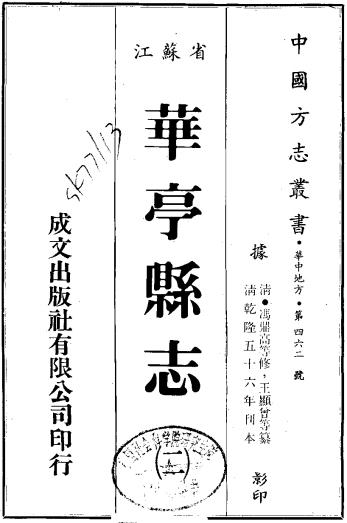 中國方志叢書・華中地方・第四六二號
據
清・馮鼎高等修，王顯曾等纂
清乾隆五十六年刊本
影印
江蘇省
華亭縣志
(二)
成文出版社有限公司印行